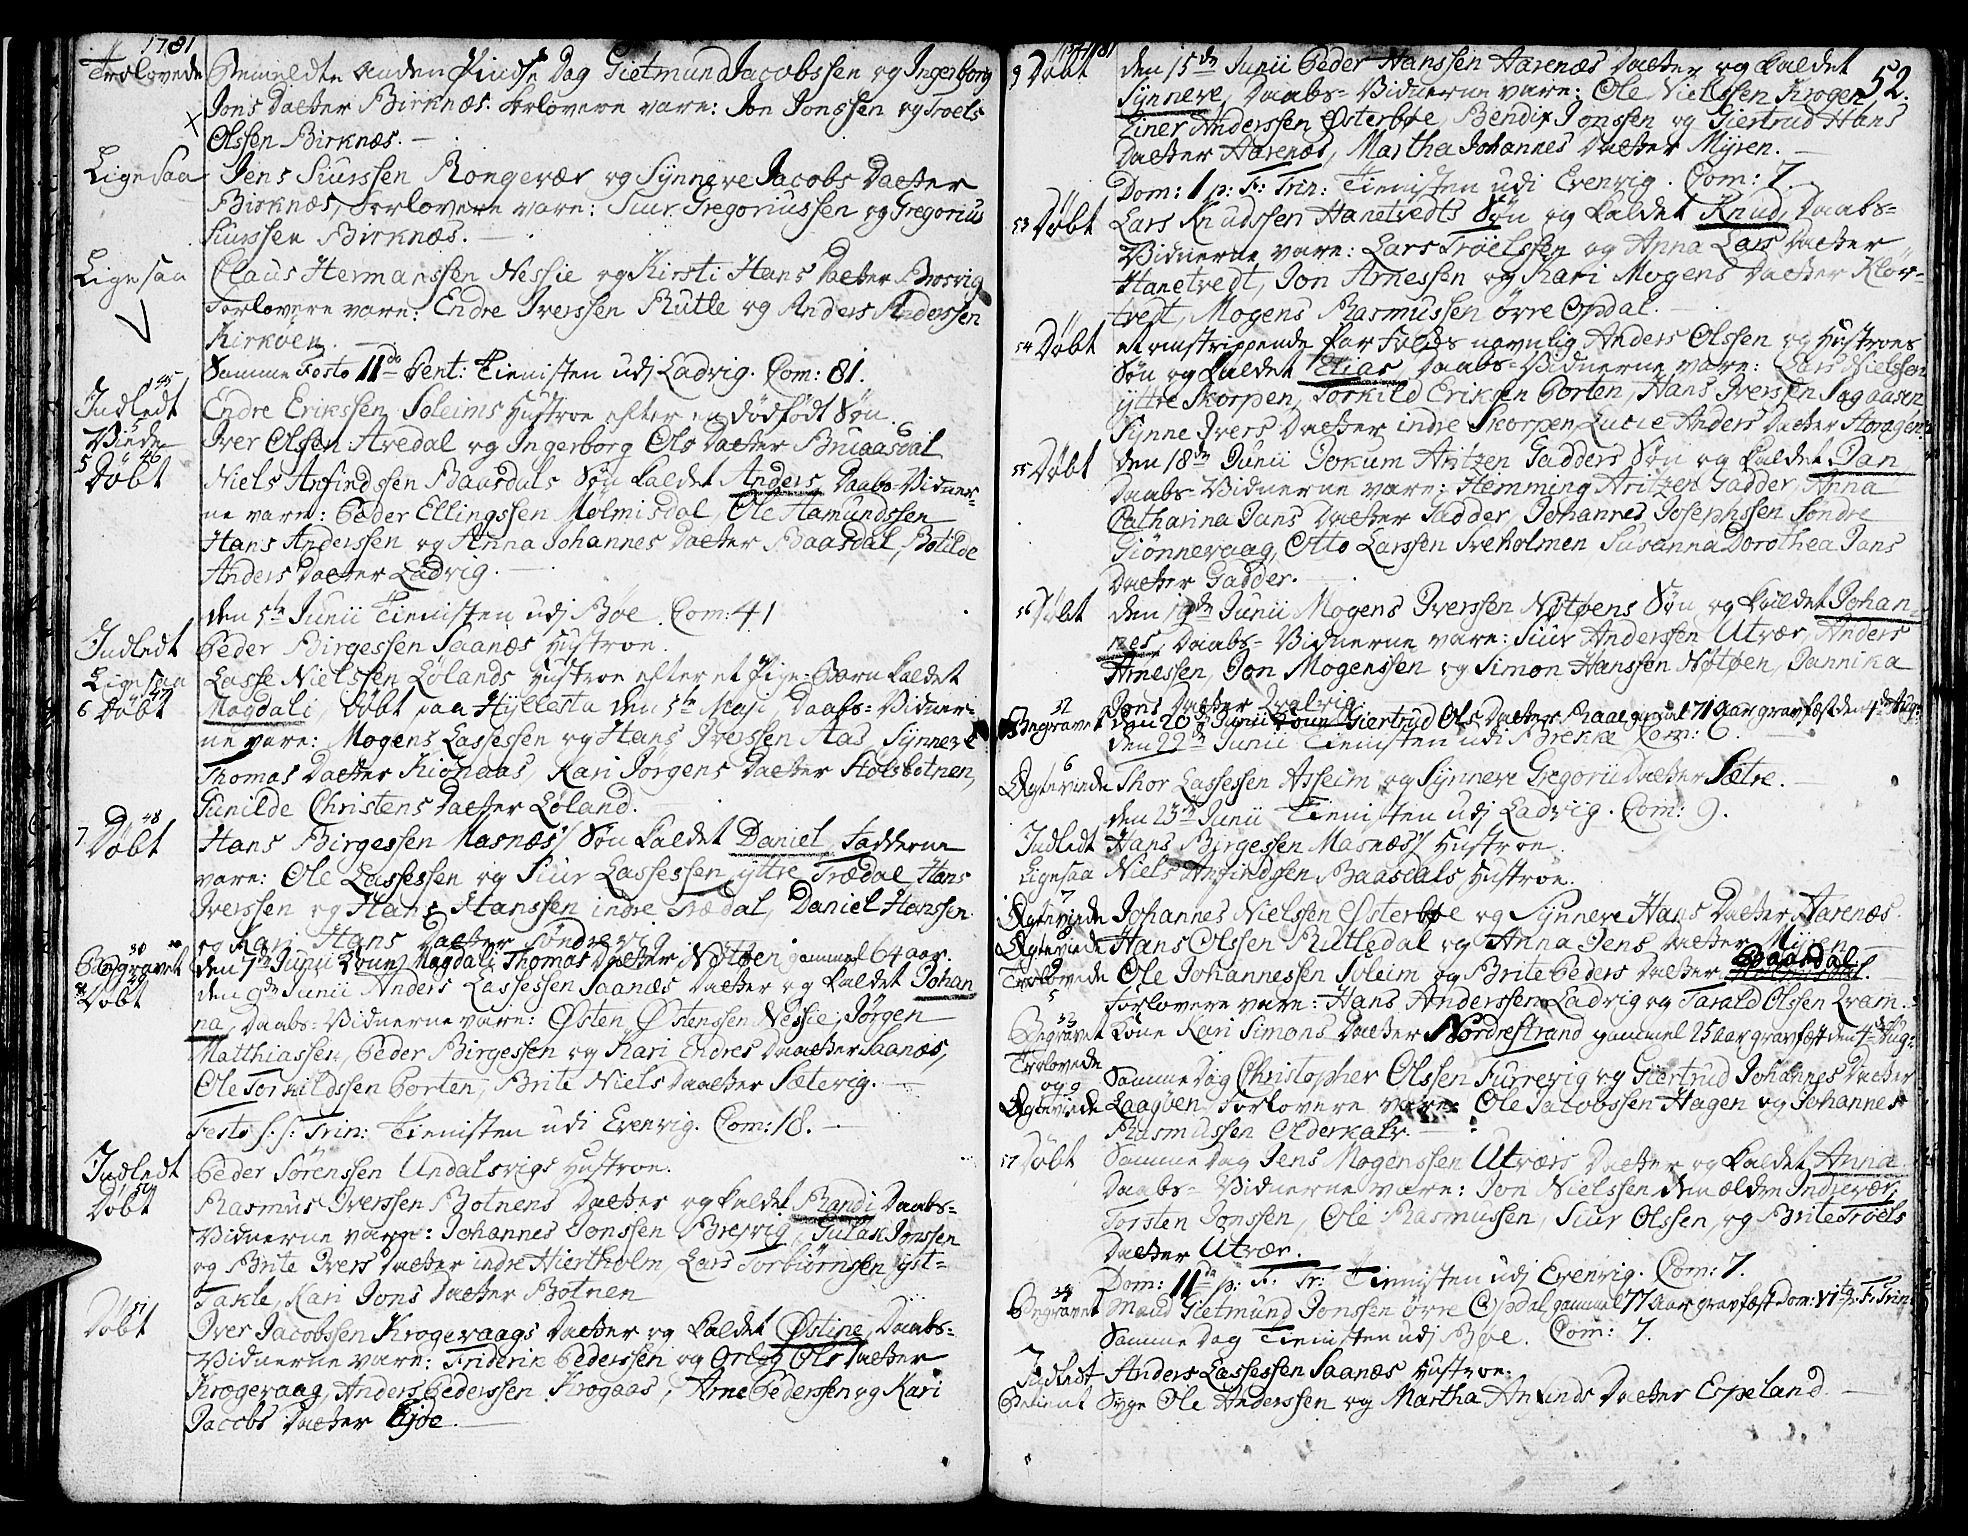 1781
Trolovede Bemeldte anden Pindse Dag Gietmund Jacobssen og Ingerborg
Jons Datter Birknæs. Forlovere vare: Jon Jonssen og Troels
Olssen Birknæs.
Ligesaa Jens Siurssen Rongevær og Synneve Jacobs Datter
Birknæs, Forlovere vare: Siur Gregoriussen og Gregorius
Siurssen Birknæs.
Ligesaa Claus Hermanssen Nessie og Kirsti Hans Datter Brosvig
Forlovere vare: Endre Iverssen Rutle og Anders Anderssen
Kirkøen.
Samme Festo II do Pent: Tienisten udj Ladvig. Com: 81.
45 Indledt Endre Erikssen Soleims Hustroe efter en dødfødt Søn.
Viede Iver Olssen Avedal og Ingerborg Ols Datter Bruaasdal
5 46 Døbt Niels Anfindssen Baasdals Søn kaldet Anders, Daabs-Vidner-
ne vare: Peder Ellingssen Molmisdal, Ole Hamundssen
Hans Anderssen og Anna Johannes Datter Baasdal, Botilde
Anders Datter Ladvig.
den 5te Junii Tienisten udj Bøe. Com: 41
Indledt Peder Birgessen Saanæs Hustroe.
Ligesaa Lasse Nielssen Lølands Hustroe efter et Pige-Barn kaldet
6 47 Døbt Magdali, døbt paa Hyllestad den 5te Maji, Daabs-Vidner-
ne vare: Mogens Lassessen og Hans Iverssen Aas, Synneve
Thomas Datter Kionaas, Kari Jorgens Datter Stolsbotnen,
Gunilde Christens Datter Løland.
7 48 Døbt Hans Birgessen Masnæs Søn kaldet Daniel, Fadderne
vare: Ole Lassessen og Siur Lassessen yttre Trædal, Hans
Iverssen og Hans Hanssen indre Trædal, Daniel Hanssen
og Kari Hans Datter Søndrevig
Begravet den 7de Junii Kone Magdali Thomas Datter Nøtøen gammel 64 aar.
Døbt den 9de Junii Anders Lassessen Saanæs Datter og kaldet Johan
na, Daabs-Vidnerne vare: Østen Østenssen Nessie, Jørgen
Matthiassen, Peder Birgessen og Kari Endres Datter Saanæs,
Ole Torkildssen Porten, Brite Niels Datter Sætevig.
Festo S: S: Trin: Tienisten udi Evenvig. Com: 18.
Indledt Peder Sørenssen Undalsvigs Hustroe.
50 Døbt Rasmus Iverssen Botnens Datter og kaldet Randi, Daabs-
Vidnerne vare: Johannes Jonssen Brejvig, Gulak Jonssen
og Brite Ivers Datter indre Hiertholm, Lars Torbiørnssen yst-
Takle, Kari Jons Datter Botnen
51 Døbt Iver Jacobssen Krogevaags Datter og kaldet Østine, Daabs-
Vidnerne vare: Friderik Pederssen og Orlog Ols Datter
Krogevaag, Anders Pederssen Krogaas, Arne Pederssen og Kari
Jacobs Datter Eide.
1781
52.
9 Døbt den 15de Junii Peder Hanssen Aarenæs Datter og kaldet
Synneve, Daabs-Vidnerne vare: Ole Nielssen Krogen
Einer Anderssen Østerboe, Bendix Jonssen og Giertrud Hans
Datter Aarenæs, Martha Johannes Datter Myren.
Dom: 1 p: F: Trin: Tienisten udi Evenvig. Com: 7.
53 Døbt Lars Knudssen Hanetvedts Søn og kaldet Knud, Daabs-
Vidnerne vare: Lars Troelssen og Anna Lars Datter
Hanetvedt, Jon Arnessen og Kari Mogens Datter Klov-
tvedt, Mogens Rasmussen øvre Opdal.
54 Døbt et omstrippende Par Folkes navnlig Anders Olssen og Hustroes
Søn og kaldet Elias, Daabs-Vidnerne vare: Lars Nielssen
yttre Skorpen, Torkild Erikssen Porten, Hans Iverssen Sagaasen
Synne Ivers Datter indre Skorpen, Lucie Anders Datter
55 Døbt den 18de Junii Jokum Antzen Gadders Søn og kaldet Jan
Daabs-Vidnerne vare: Hemming Antzen Gadder, Anna
Catharina Jans Datter Gadder, Johannes Josephssen Søndre
Giønnevaag, Otto Larssen Sveholmen Susanna Dorothea Jans
Datter Gadder.
56 Døbt den 19de Junii Mogens Iverssen Nøtøens Søn og kaldet Johan-
nes, Daabs-Vidnerne vare: Siur Anderssen Utvær, Anders
Arnessen, Jon Mogenssen og Simon Hanssen Nøtøen, Jannika
Jons Datter Qvalvig.
32 Begravet den 20de Junii Kone Giertrud Ols Datter gammel 71 Aar gravfæst den 4de Aug:
den 22de Junii Tienisten udi Brekke Com: 6.
6 Ægteviede Skor Lassessen Asheim og Synneve Gregorii Datter Sætre.
den 23de Junii Tienisten udj Ladvig. Com: 9.
Indledt Hans Birgessen Masnæs Hustroe.
Ligesaa Niels Anfindssen Baasdals Hustroe.
7 Ægteviede Johannes Nielssen Østerboe og Synneve Hans Datter Aarenæs.
Ægteviede Hans Olssen Rutledal og Anna Jens Datter Mijren
Trolovede Ole Johannessen Soleim og Brite Peders Datter Baasdal.
5 Forlovere vare: Hans Anderssen Ladvig og Tarald Olssen Qvam.
33 Begravet Kone Kari Simons Datter Nordrestrand gammel 25 aar gravfæst den 4de Aug:
Trolovede
og 9 Samme Dag Christopher Olssen Furrevig og Giertrud Johannes Datter
Ægteviede Laagøen, Forlovere vare: Ole Jacobssen Hagen og Johannes
Rasmussen Olderkalv.
57 Døbt Samme Dag Jens Mogenssen Utværs Datter og kaldet Anna
Daabs-Vidnerne vare: Jon Nielssen den ældre Indrevær,
Torsten Jonssen, Ole Rasmussen, Siur Olssen, og Brite Troels
Datter Utvær.
Dom: II da p: F: Tr: Tienisten udj Evenvig. Com: 7.
34 Begravet Mand Gietmund Jonssen øvre Opdal gammel 77 aar gravfæst Dom: VI p: F: Trin:
Samme Dag Tienisten udj Bøe. Com: 7.
Indledt Anders Lassessen Saanæs Hustroe.
Betient Syge Ole Anderssen og Martha Amunds Datter Espeland.